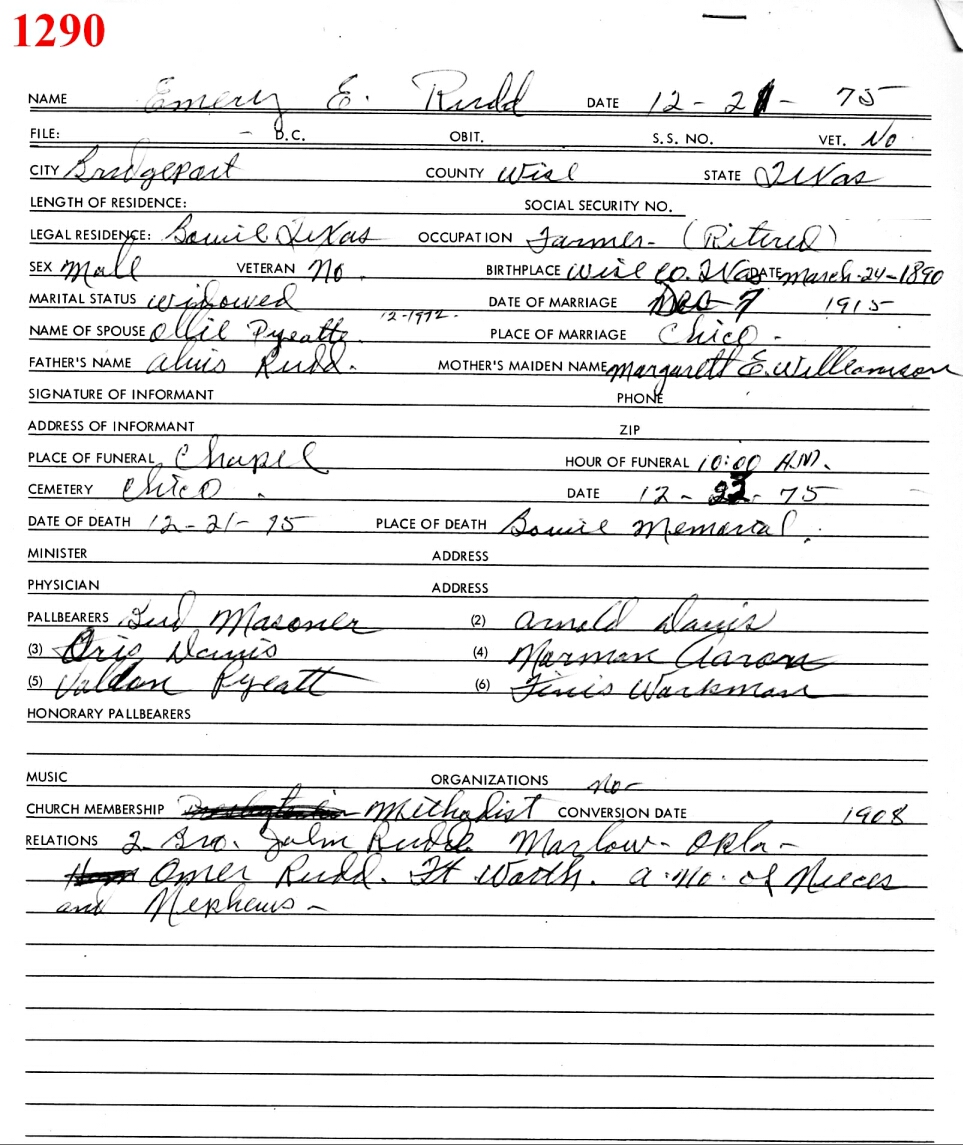 1290
NAME Emery E. Rudd DATE 12-21-75
FILE: - D.C. OBIT. S.S. NO. VET. No
CITY Bridgeport COUNTY Wise STATE Texas
LENGTH OF RESIDENCE: SOCIAL SECURITY NO.
LEGAL RESIDENCE: Bowie Texas OCCUPATION Farmer- (Retired)
SEX Male VETERAN No. BIRTHPLACE Wise Co. Texas DATE March-24-1890
MARITAL STATUS widowed DATE OF MARRIAGE Dec 7 1915
NAME OF SPOUSE Ollie Pyeatte. 12-1972. PLACE OF MARRIAGE Chico -
FATHER'S NAME Alvis Rudd. MOTHER'S MAIDEN NAME Margarett E. Williamson
SIGNATURE OF INFORMANT PHONE
ADDRESS OF INFORMANT ZIP
PLACE OF FUNERAL Chapel HOUR OF FUNERAL 10:00 A.M.
CEMETERY Chico. DATE 12-22-75
DATE OF DEATH 12-21-75 PLACE OF DEATH Bowie Memorial.
MINISTER ADDRESS
PHYSICIAN ADDRESS
PALLBEARERS Bud Masoner (2) Arnold Davis
(3) Oris Davis (4) Norman Aaron
(5) Valdon Pyeatt (6) Finis Workman
HONORARY PALLBEARERS
MUSIC ORGANIZATIONS No-
CHURCH MEMBERSHIP Presbyterian Methodist CONVERSION DATE 1908
RELATIONS 2 Bro. John Rudd. Marlow- Okla-
Omer Rudd. Ft Worth. a.No. of Nieces
and Nephews-